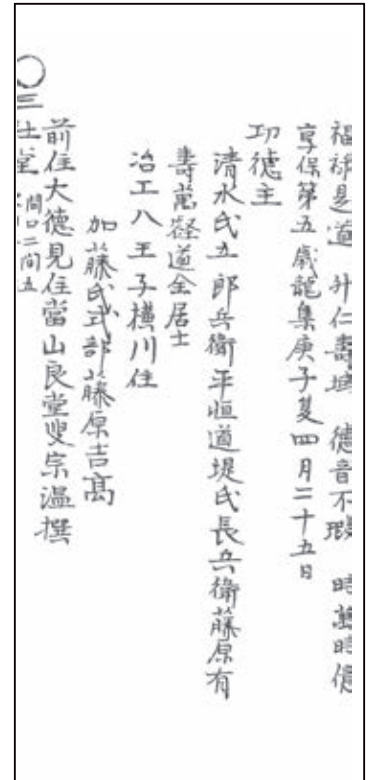 福禄是道 升仁壽域 德音不瑕 時萬時億
享保第五歳龍集庚子夏四月二十五日
功徳主
清水氏五郎兵衛平恒道堤氏長兵衛藤原有
壽萬経道金居士
冶工八王子横川住
加藤氏式部藤原吉高
前住大徳見住當山良堂叟宗温撰
〇三社堂 間口二間五